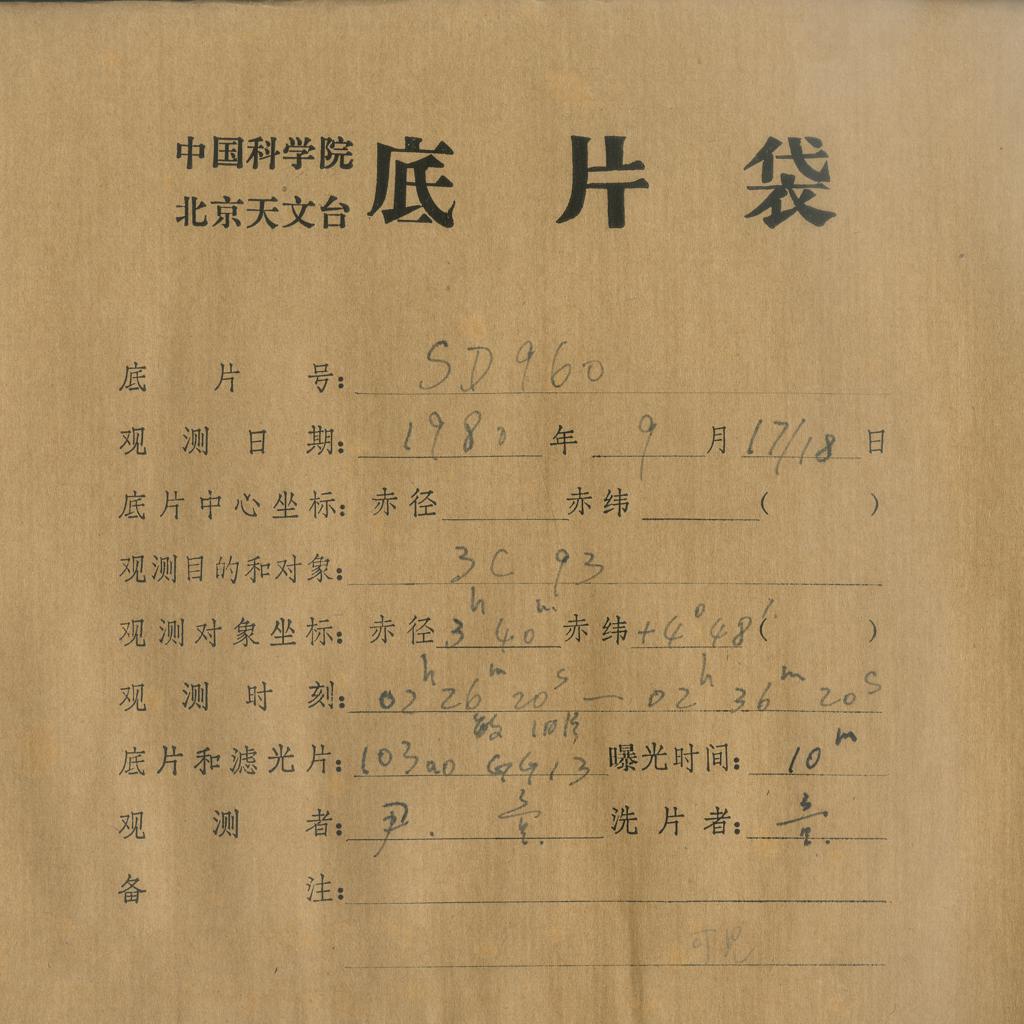 中国科学院
北京天文台
底片袋
底片号: SD960
观测日期: 1980年 9月17/18日
底片中心坐标: 赤径 赤纬 ( )
观测目的和对象: 3C 93
观测对象坐标: 赤径 3h 40m 赤纬 +4° 48′ ( )
观测时刻: 02h 26m 20s — 02h 36m 20s
底片和滤光片: 103aO GG13 曝光时间: 10m
观测者: 尹. 洗片者:
备注: